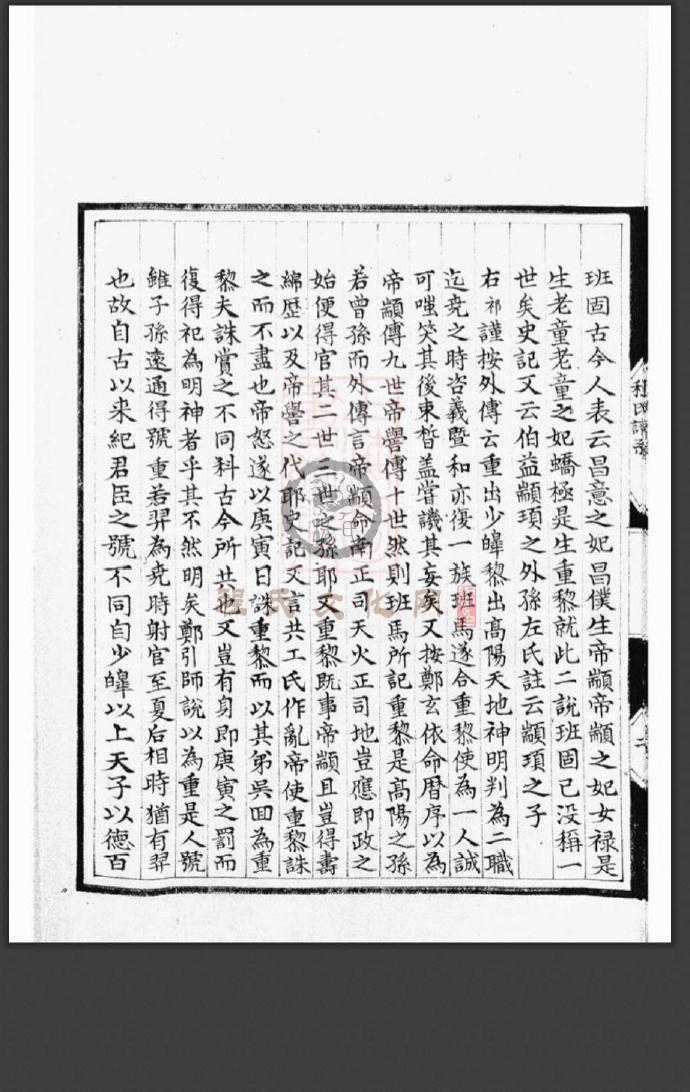 班固古今人表云昌意之妃昌僕生帝顓帝顓之妃女禄是
生老童老童之妃蟜極是生重黎就此二說班固已没稱一
世矣史記又云伯益顓頊之外孫左氏註云顓頊之子
右祁謹按外傳云重出少皥黎出高陽天地神明判為二職
迄堯之時咨羲暨和亦復一族班馬遂合重黎使為一人誠
可嗤笑其後束晳盖嘗譏其妄矣又按鄭玄依命曆序以為
帝顓傳九世帝嚳傳十世然則班馬所記重黎是高陽之孫
若曾孫而外傳言帝顓命南正司天火正司地豈應即政之
始便得官其二世三世之孫耶又重黎既事帝顓且豈得壽
綿歷以及帝嚳之代耶史記又言共工氏作亂帝使重黎誅
之而不盡也帝怒遂以庚寅日誅重黎而以其弟吳回為重
黎夫誅賞之不同科古今所共也又豈有身即庚寅之罰而
復得祀為明神者乎其不然明矣鄭引師說以為重是人號
雖子孫遠通得號重若羿為堯時射官至夏后相時猶有羿
也故自古以来紀君臣之號不同自少皥以上天子以德百
程氏譜
程氏文化网